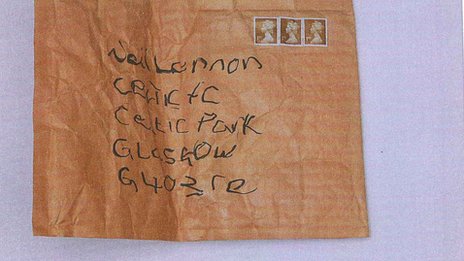 Neil Lennon
CELtIC FC
CELtIC PARK
GLASGOW
G40 3re